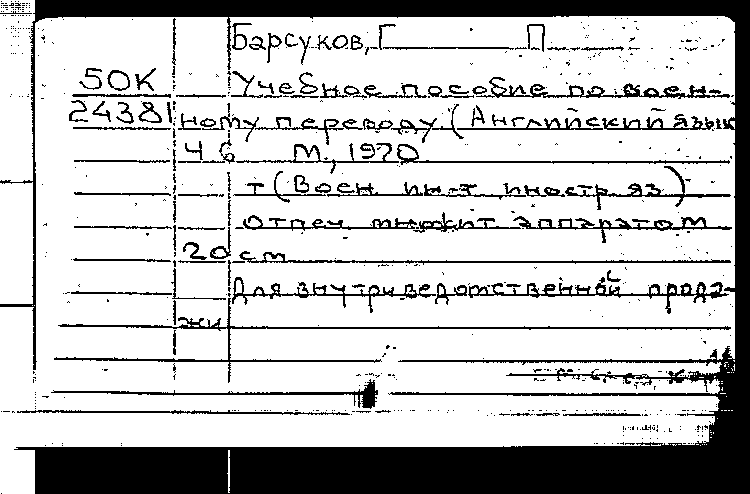 Барсуков, Г П
50К Учебное пособие по воен-
24381 ному переводу. (Английский язык
Ч 6 М., 1970
т (Воен ин-т иностр яз)
Отпеч множит аппаратом
20 см
Для внутриведомственной прода-
жи